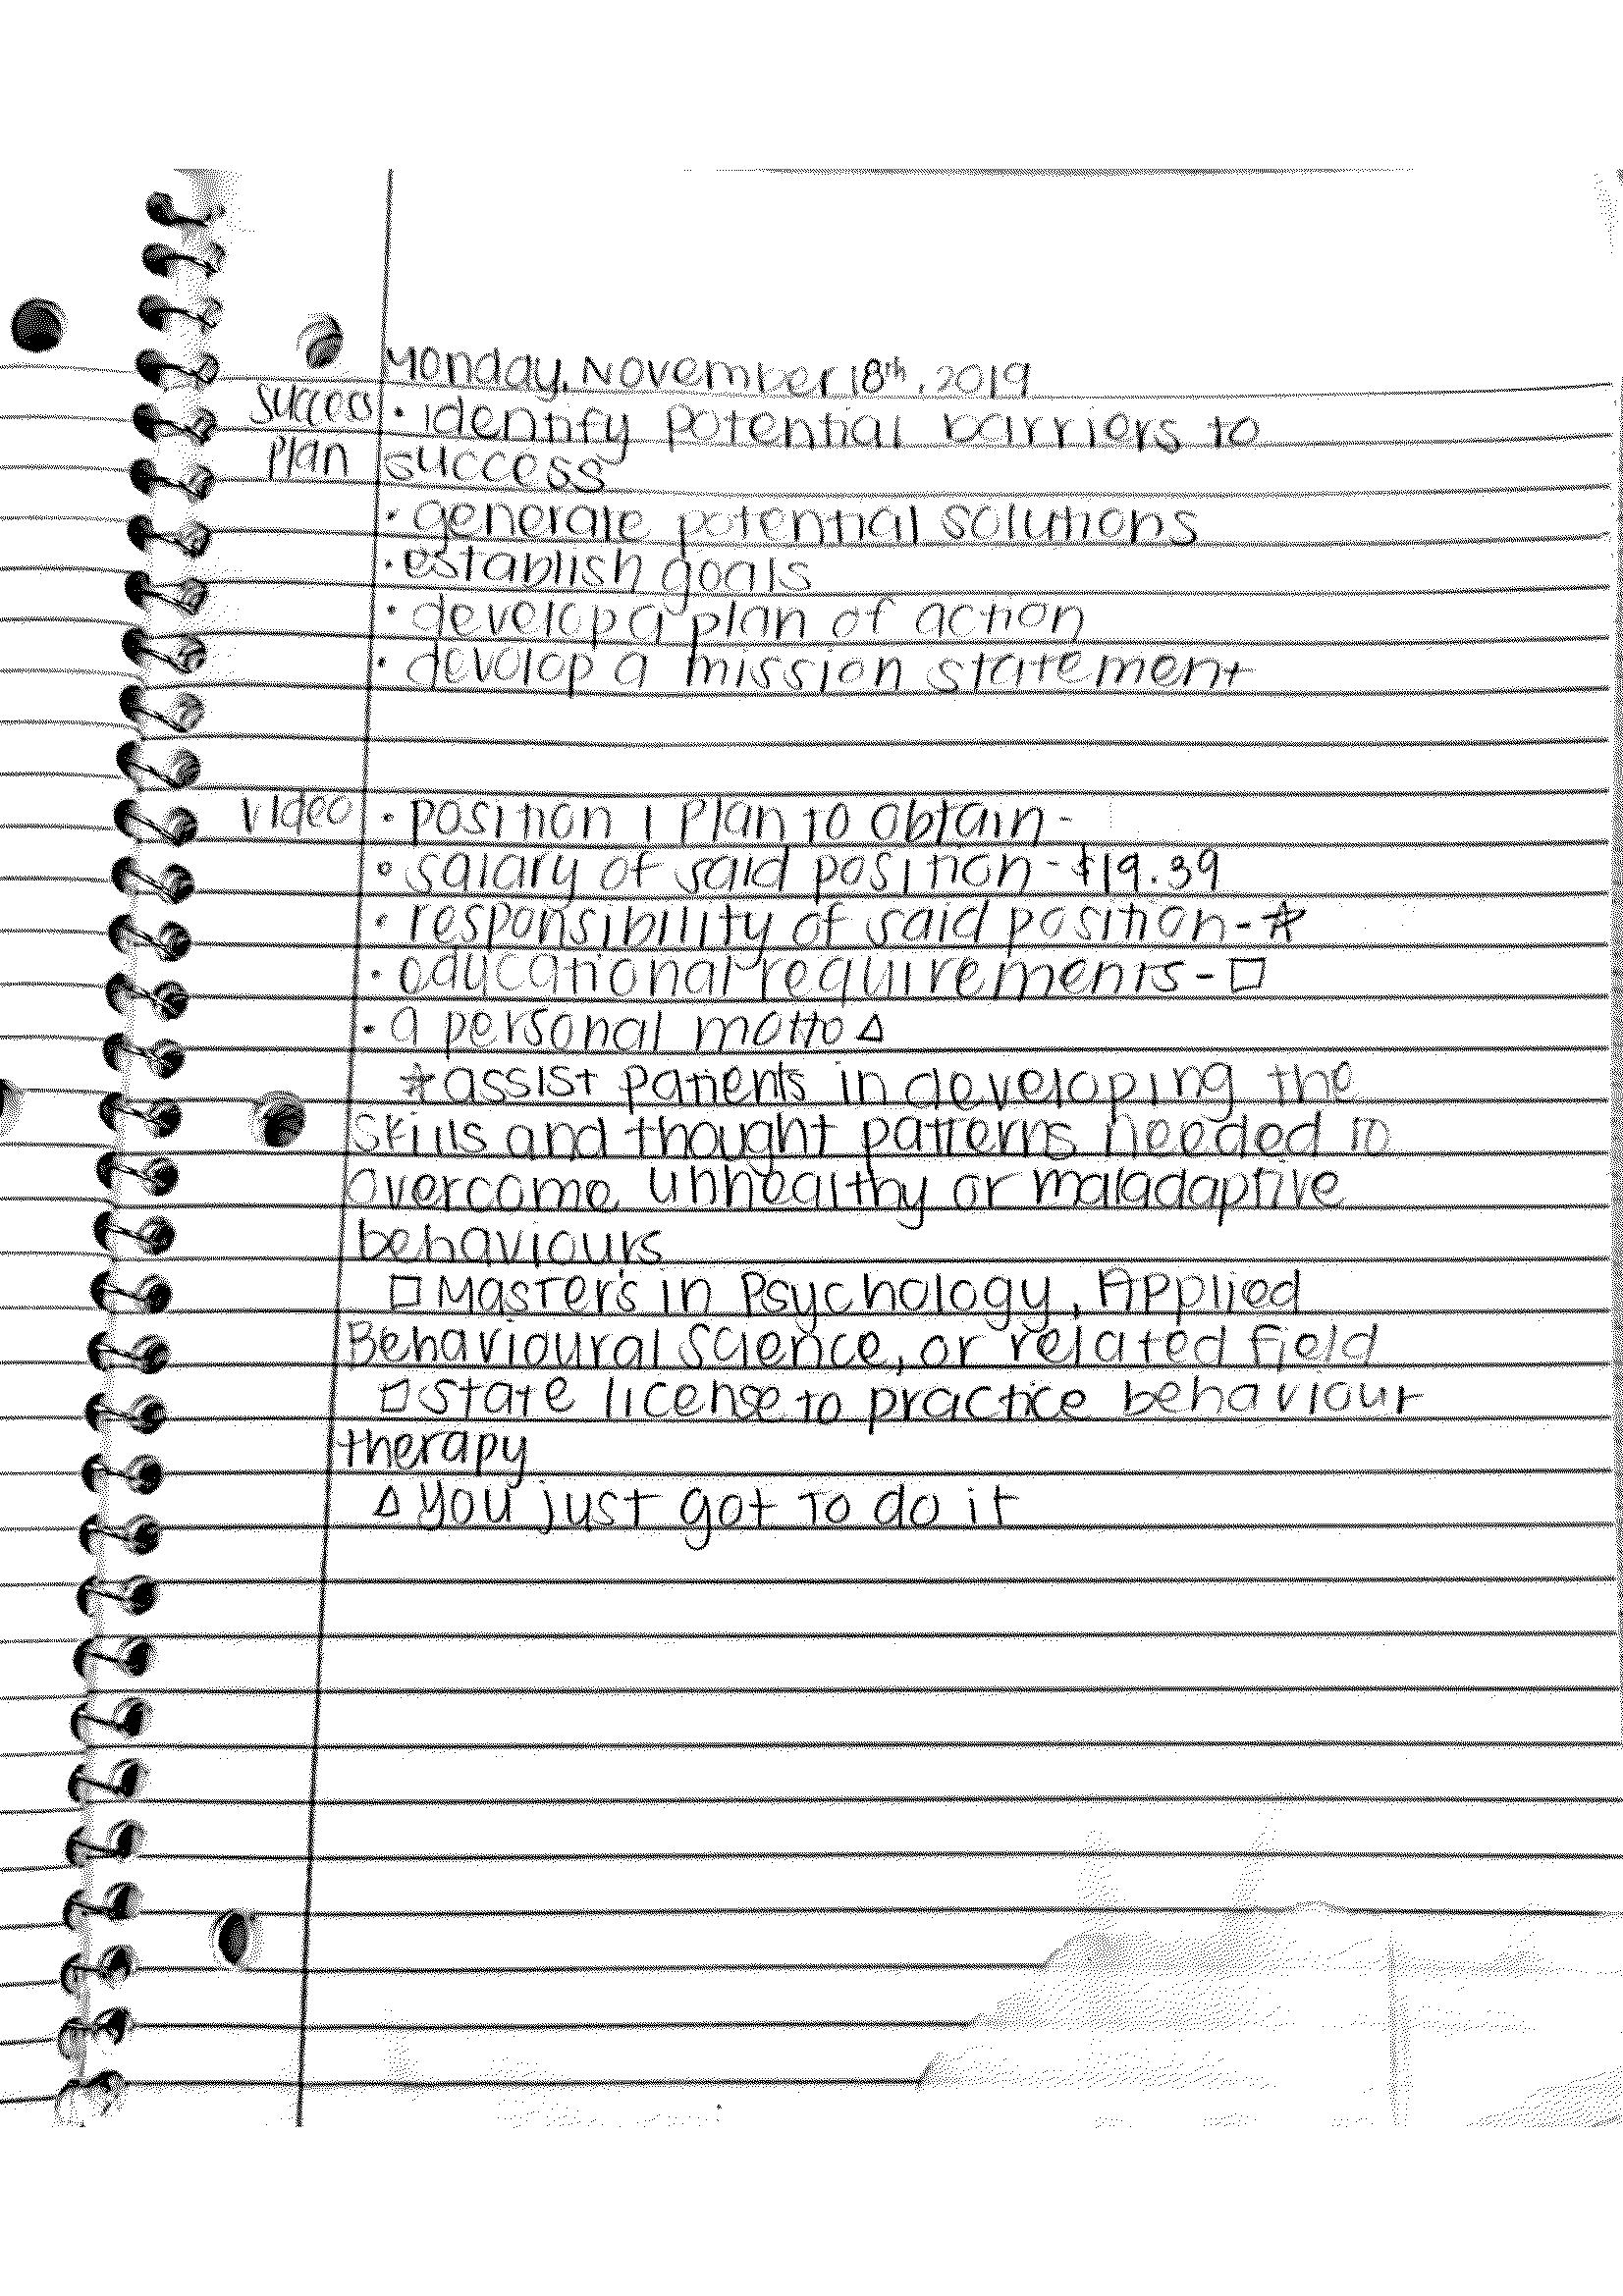 Monday, November 18th, 2019
success • identify potential barriers to
plan success
• generate potential solutions
• establish goals
• develop a plan of action
• develop a mission statement
video • position I plan to obtain -
• salary of said position - $19.39
• responsibility of said position - *
• educational requirements - □
• a personal motto △
* assist patients in developing the
skills and thought patterns needed to
overcome unhealthy or maladaptive
behaviours
□ Master's in Psychology, Applied
Behavioural Science, or related field
□ state license to practice behaviour
therapy
△ you just got to do it